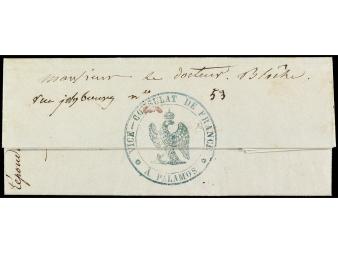 monsieur le docteur. Bloche.
rue 53
VICE-CONSULAT DE FRANCE
A PALAMOS